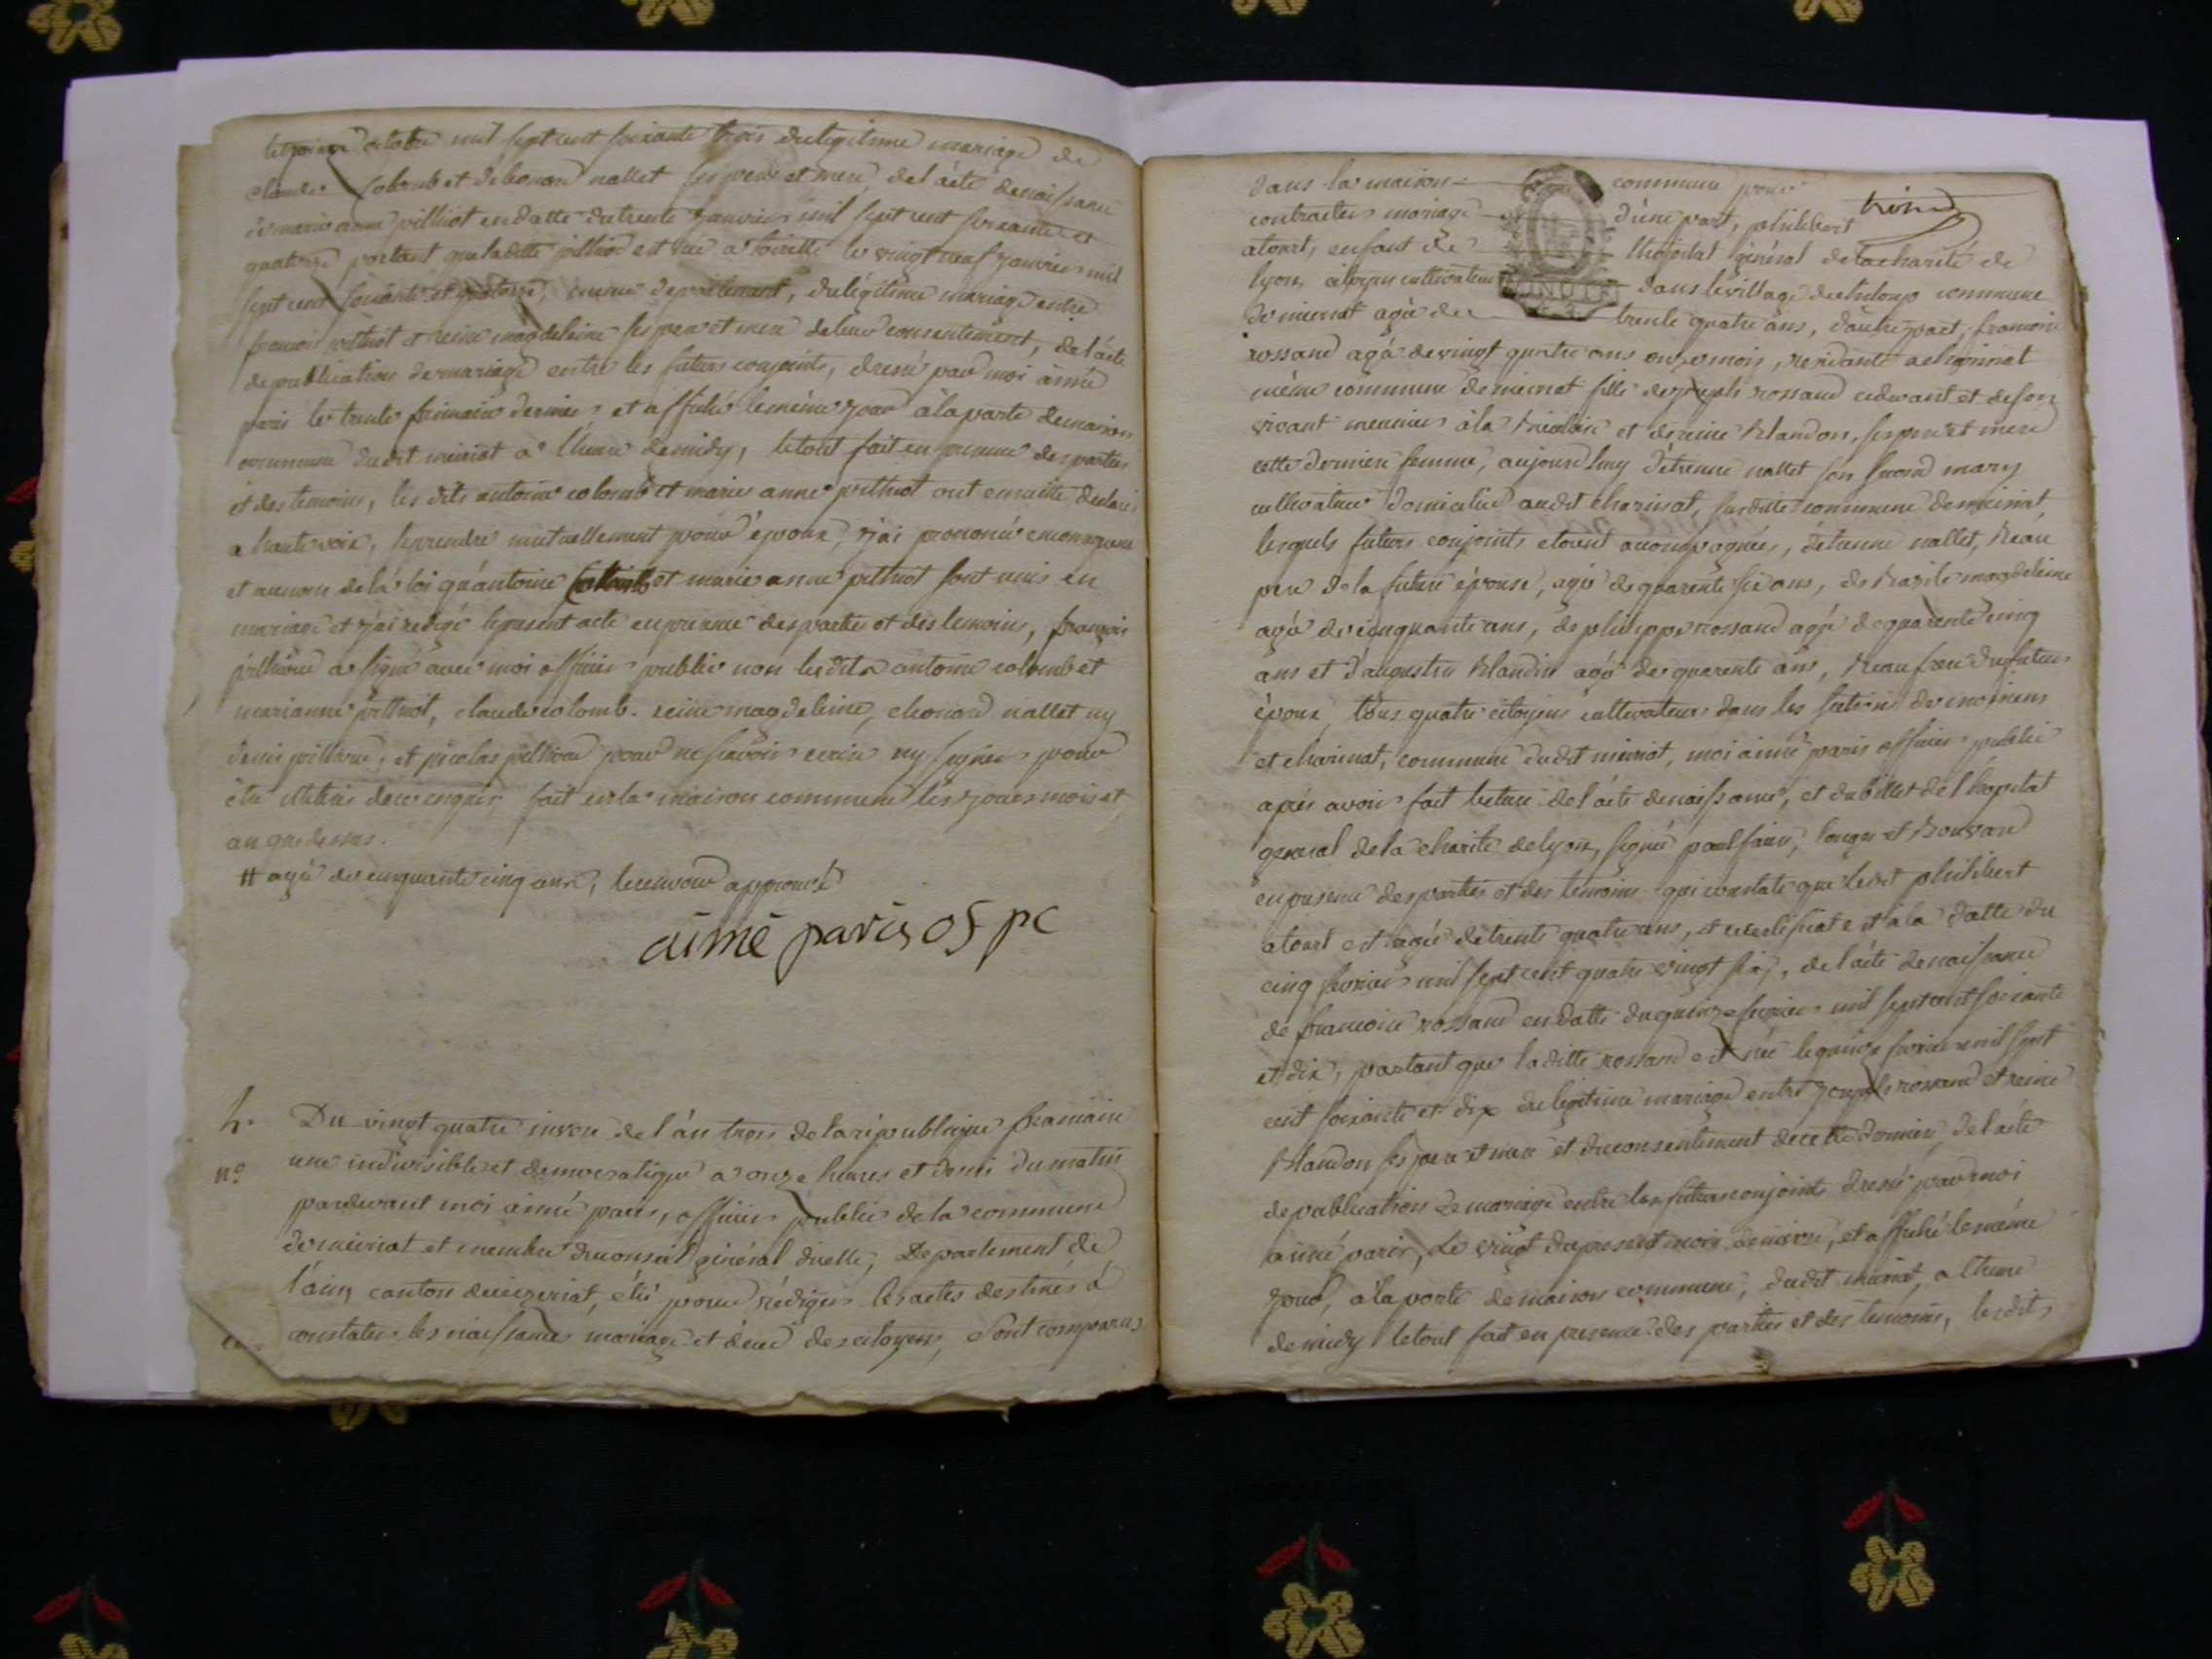 octobre mil sept cent soixante trois du legitime mariage de
claude Colomb et déleonard nallet ses pere et mere, de l'acte de naissance
de marie anne pilliiot en datte du trente janvier mil sept cent soixante et
quatorze portant que laditte est née a le vingt neuf janvier mil
sept cent soixante et quatorze, meme departement, du légitime mariage entre
francois et reine magdeleine ses pere et mere de leur consentement, de l'acte
de publication de mariage entre les futurs conjoints, dressé par moi aimé
paris le trente frimaire dernier et affiché le même jour à la porte de maison
commune dudit meiriat à l'heure de midy, le tout fait en presence des parties
et des temoins, les dits antoine colomb et marie anne ont ensuite declaré
a haute voix, se prendre mutuellement pour époux, j'ai prononcé
et au nom de la loi qu'antoine Colomb et marie anne sont unis en
mariage et j'ai redigé le present acte en presence des parties et des temoins, françois
a signé avec moi officier public non lesdits antoine colomb et
marianne claude colomb. reine magdeleine, nallet ny
denis et nicolas pour ne scavoir ecrire ny signer pour
être illiterés de ce enquis, fait en la maison commune les jours mois et
an que dessus.
# agé de cinquante cinq ans, le renvoi approuvé
aimé paris of pc
h. Du vingt quatre nivose de l'an trois de la république francaise
n.o une indivisible et democratique a onze heures et demi du matin
pardevant moi aimé paris, officier public de la commune
de meiriat et membre du conseil général d'icelle, Departement de
l'ain, canton de élu pour rédiger les actes destinés à
constater les naissances mariage et décès des citoyens, sont comparus
dans la maison commune pour
contracter mariage d'une part, philibert
atourt, enfant de l'hopital général de la charité de
lyon, citoyen cultivateur dans le village de commune
de meiriat agé de trente quatre ans, d'autre part, francoise
rossand agé de vingt quatre ans onze mois, residante a charinat
même commune de meiriat fille de joseph rossand cidevant et de son
vivant meunier à la et de reine Blandon, ses pere et mere
cette derniere femme, aujourd'huy d'étienne nallet son second mary
cultivateur domicilié audit charinat, susditte commune de meiriat,
lesquels futurs conjoints etoient accompagnés, d'étienne nallet, Beau
pere de la future épouse, agé de quarente six ans, de Basile magdeleine
agé de cinquante ans, de philippe rossand agé de quarente cinq
ans et d'augustin Blandin agé de quarente ans, Beau frere du futur
époux, tous quatre citoyens cultivateurs dans les sections de
et charinat, commune dudit meiriat, moi aimé paris officier public
après avoir fait lecture de l'acte de naissance, et du billet de l'hopital
general de la charité de lyon, signé et
en presence des parties et des temoins qui constate que ledit philibert
atourt est agé de trente quatre ans, et ce certificat est à la datte du
cinq fevrier mil sept cent quatre vingt six, de l'acte de naissance
de francoise rossand en datte du quinze fevrier mil sept cent soixante
et dix, portant que laditte rossand est née le quinze fevrier mil sept
cent soixante et dix du legitime mariage entre joseph rossand et reine
Blandon ses pere et mere et du consentement de cette derniere, de l'acte
de publication de mariage entre les futurs conjoints dressé par moi
aimé paris, le vingt du present mois de nivose, et affiché le même
jour, à la porte de maison commune, dudit meiriat, a l'heure
de midy le tout fait en presence des parties et des temoins, lesdits